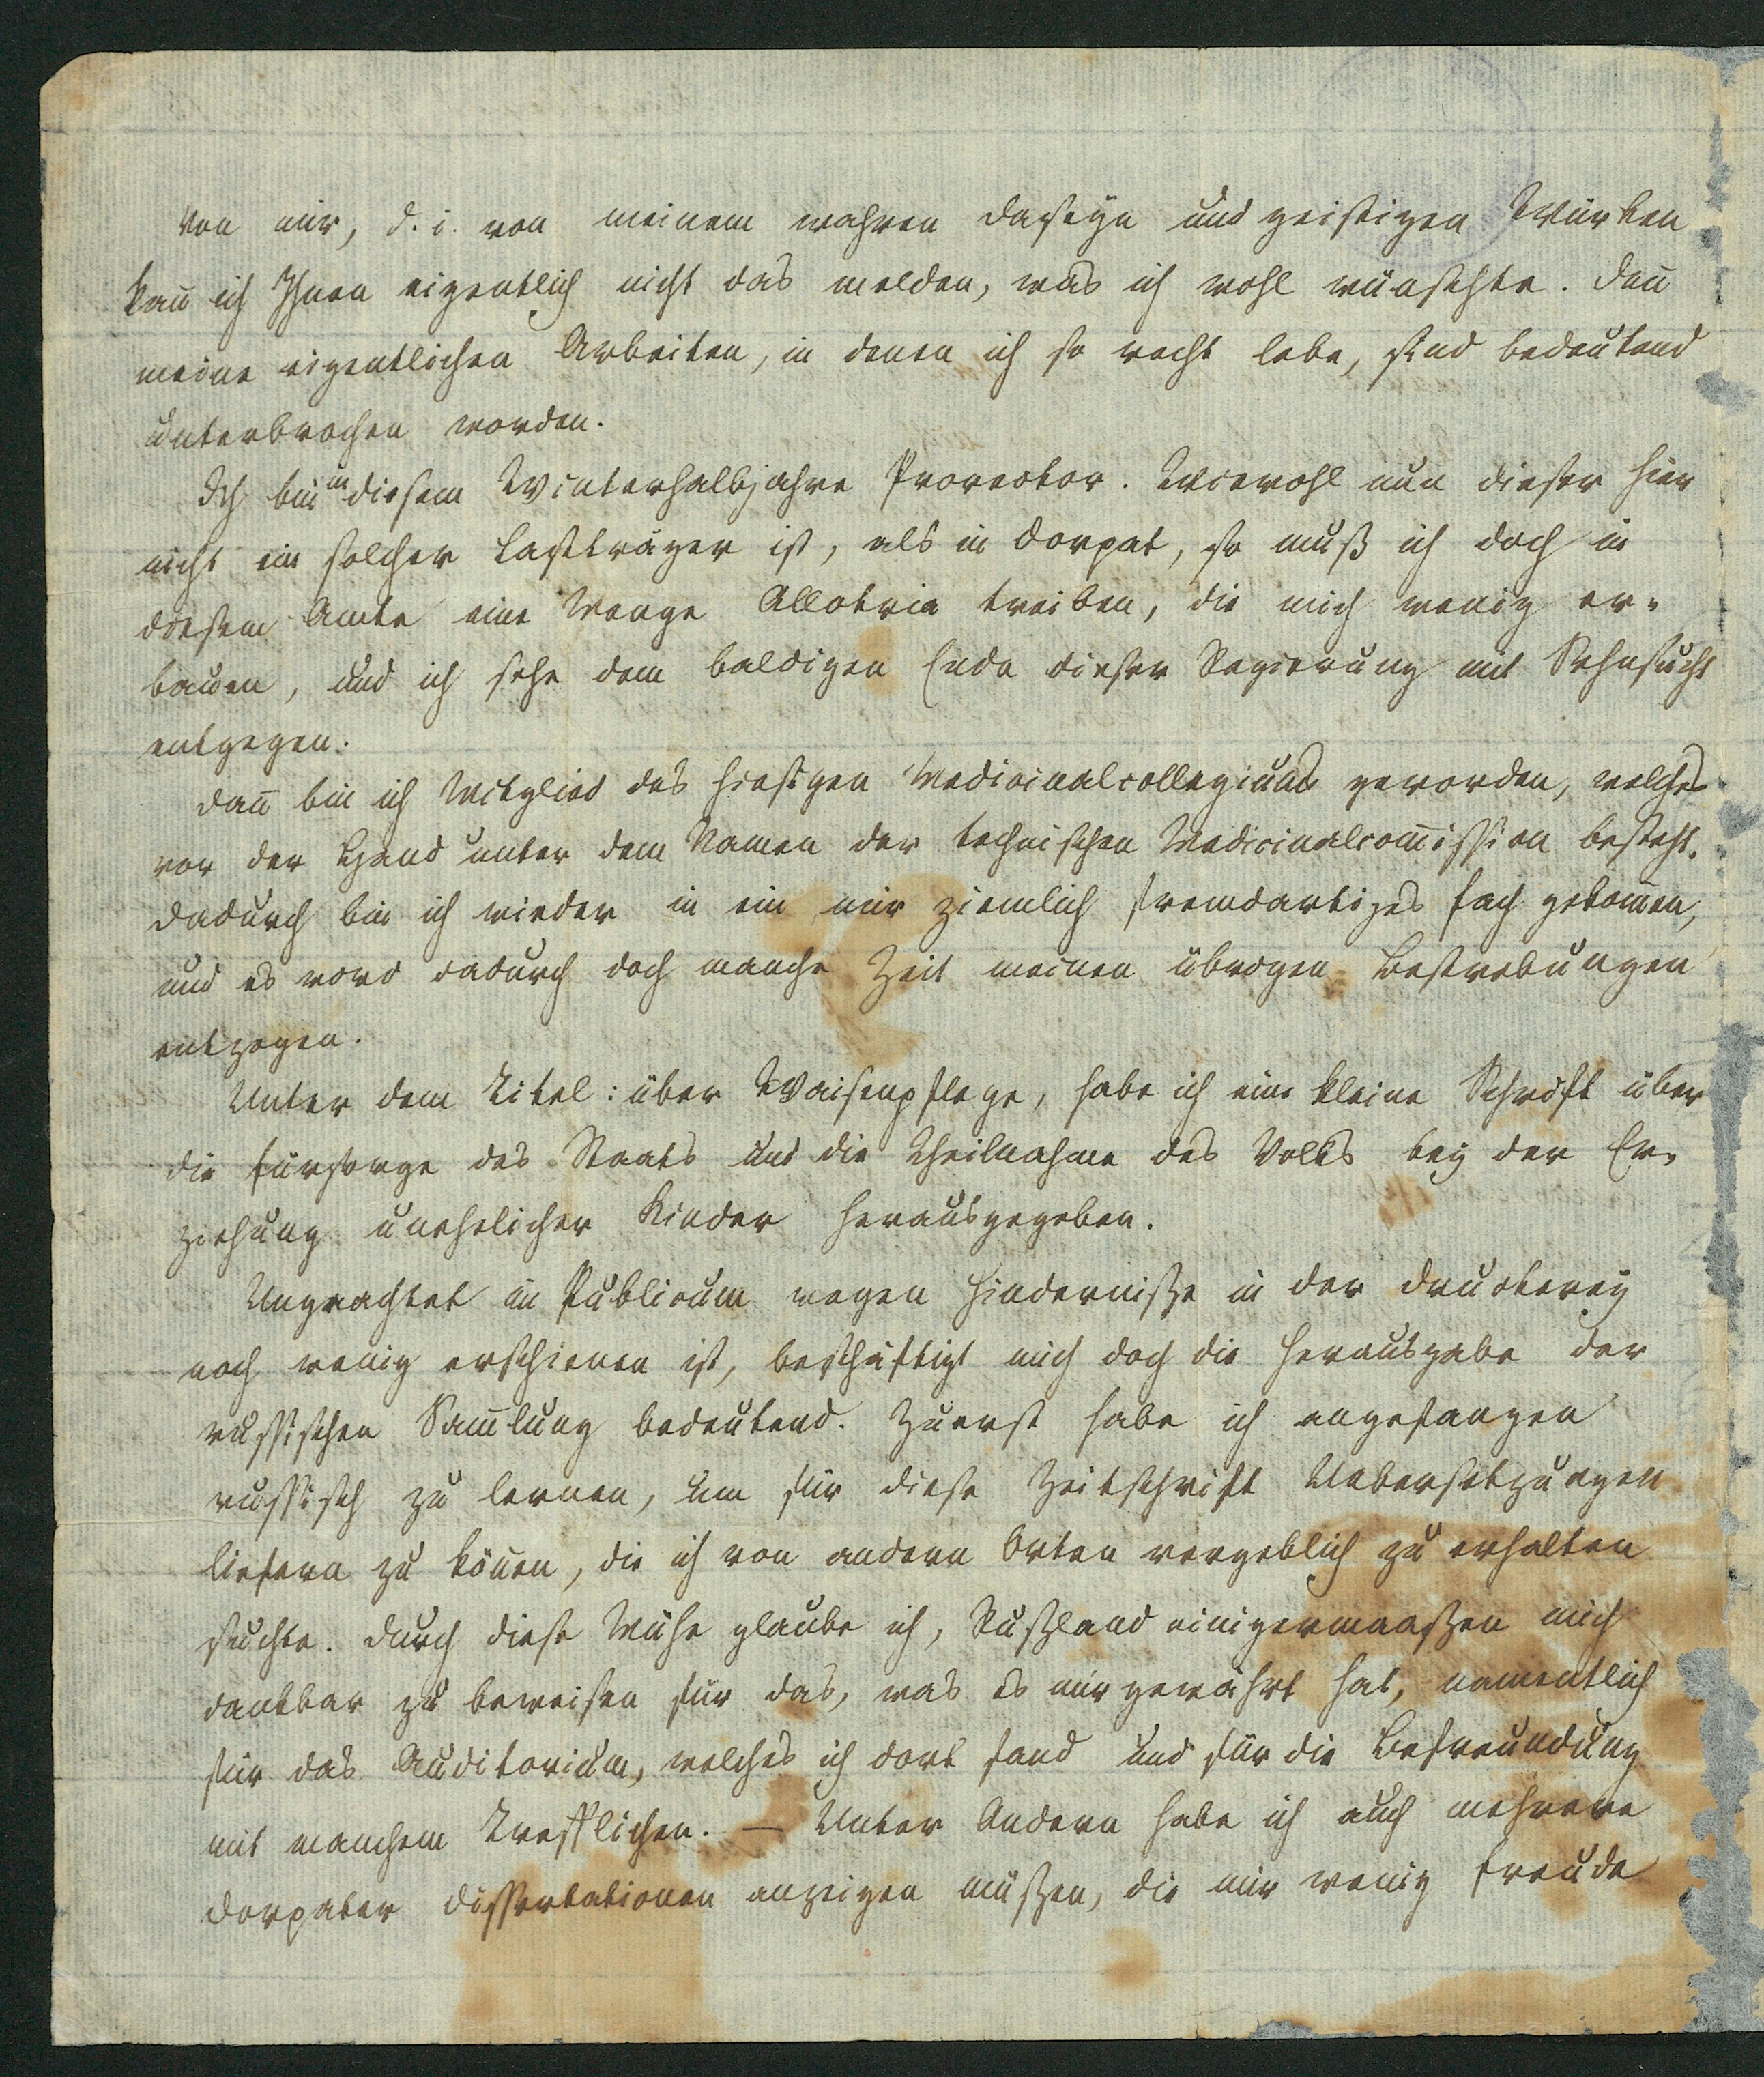 Von mir, d. i. von meinem wahren Daseÿn und geistigen Würken
kan̅ ich Ihnen eigentlich nicht das melden, was ich wohl wünschte. Den̅
meine eigentlichen Arbeiten, in denen ich so recht lebe, sind bedeutend
unterbrochen worden.
Ich bin in diesem Winterhalbjahre Prorector. Wiewohl nun dieser hier
nicht ein solcher Lastträger ist, als in Dorpat, so muß ich doch in
diesem Amte eine Menge Allotria treiben, die mich wenig er-
bauen, und ich sehe dem baldigen Ende dieser Regierung mit Sehnsucht
entgegen.
Dan̅ bin ich Mitglied des hiesigen Medicinalcollegiums geworden, welches
vor der Hand unter dem Namen der technischen Medicinalcom̅ission besteht.
Dadurch bin ich wieder in ein mir ziemlich fremdartiges Fach gekom̅en,
und es wird dadurch doch manche Zeit meinen übrigen Bestrebungen
entzogen.
Unter dem Titel: über Waisenpflege, habe ich eine kleine Schrift über
die Fürsorge des Staats und die Theilnahme des Volks beÿ der Er-
ziehung unehelicher Kinder herausgegeben.
Ungeachtet im Publicum wegen Hinderniße in der Druckereÿ
noch wenig erschienen ist, beschäftigt mich doch die Herausgabe der
russischen Sam̅lung bedeutend. Zuerst habe ich angefangen
russisch zu lernen, um für diese Zeitschrift Uebersetzungen
liefern zu kön̅en, die ich von andern Orten vergeblich zu erhalten
suchte. Durch diese Mühe glaube ich, Rußland einigermaaßen mich
dankbar zu beweisen für das, was es mir gewährt hat, namentlich
für das Auditorium, welches ich dort fand und für die Befreundung
mit manchem Trefflichen. — Unter Andern habe ich auch mehrere
Dorpater Dissertationen anzeigen müßen, die mir wenig Freude